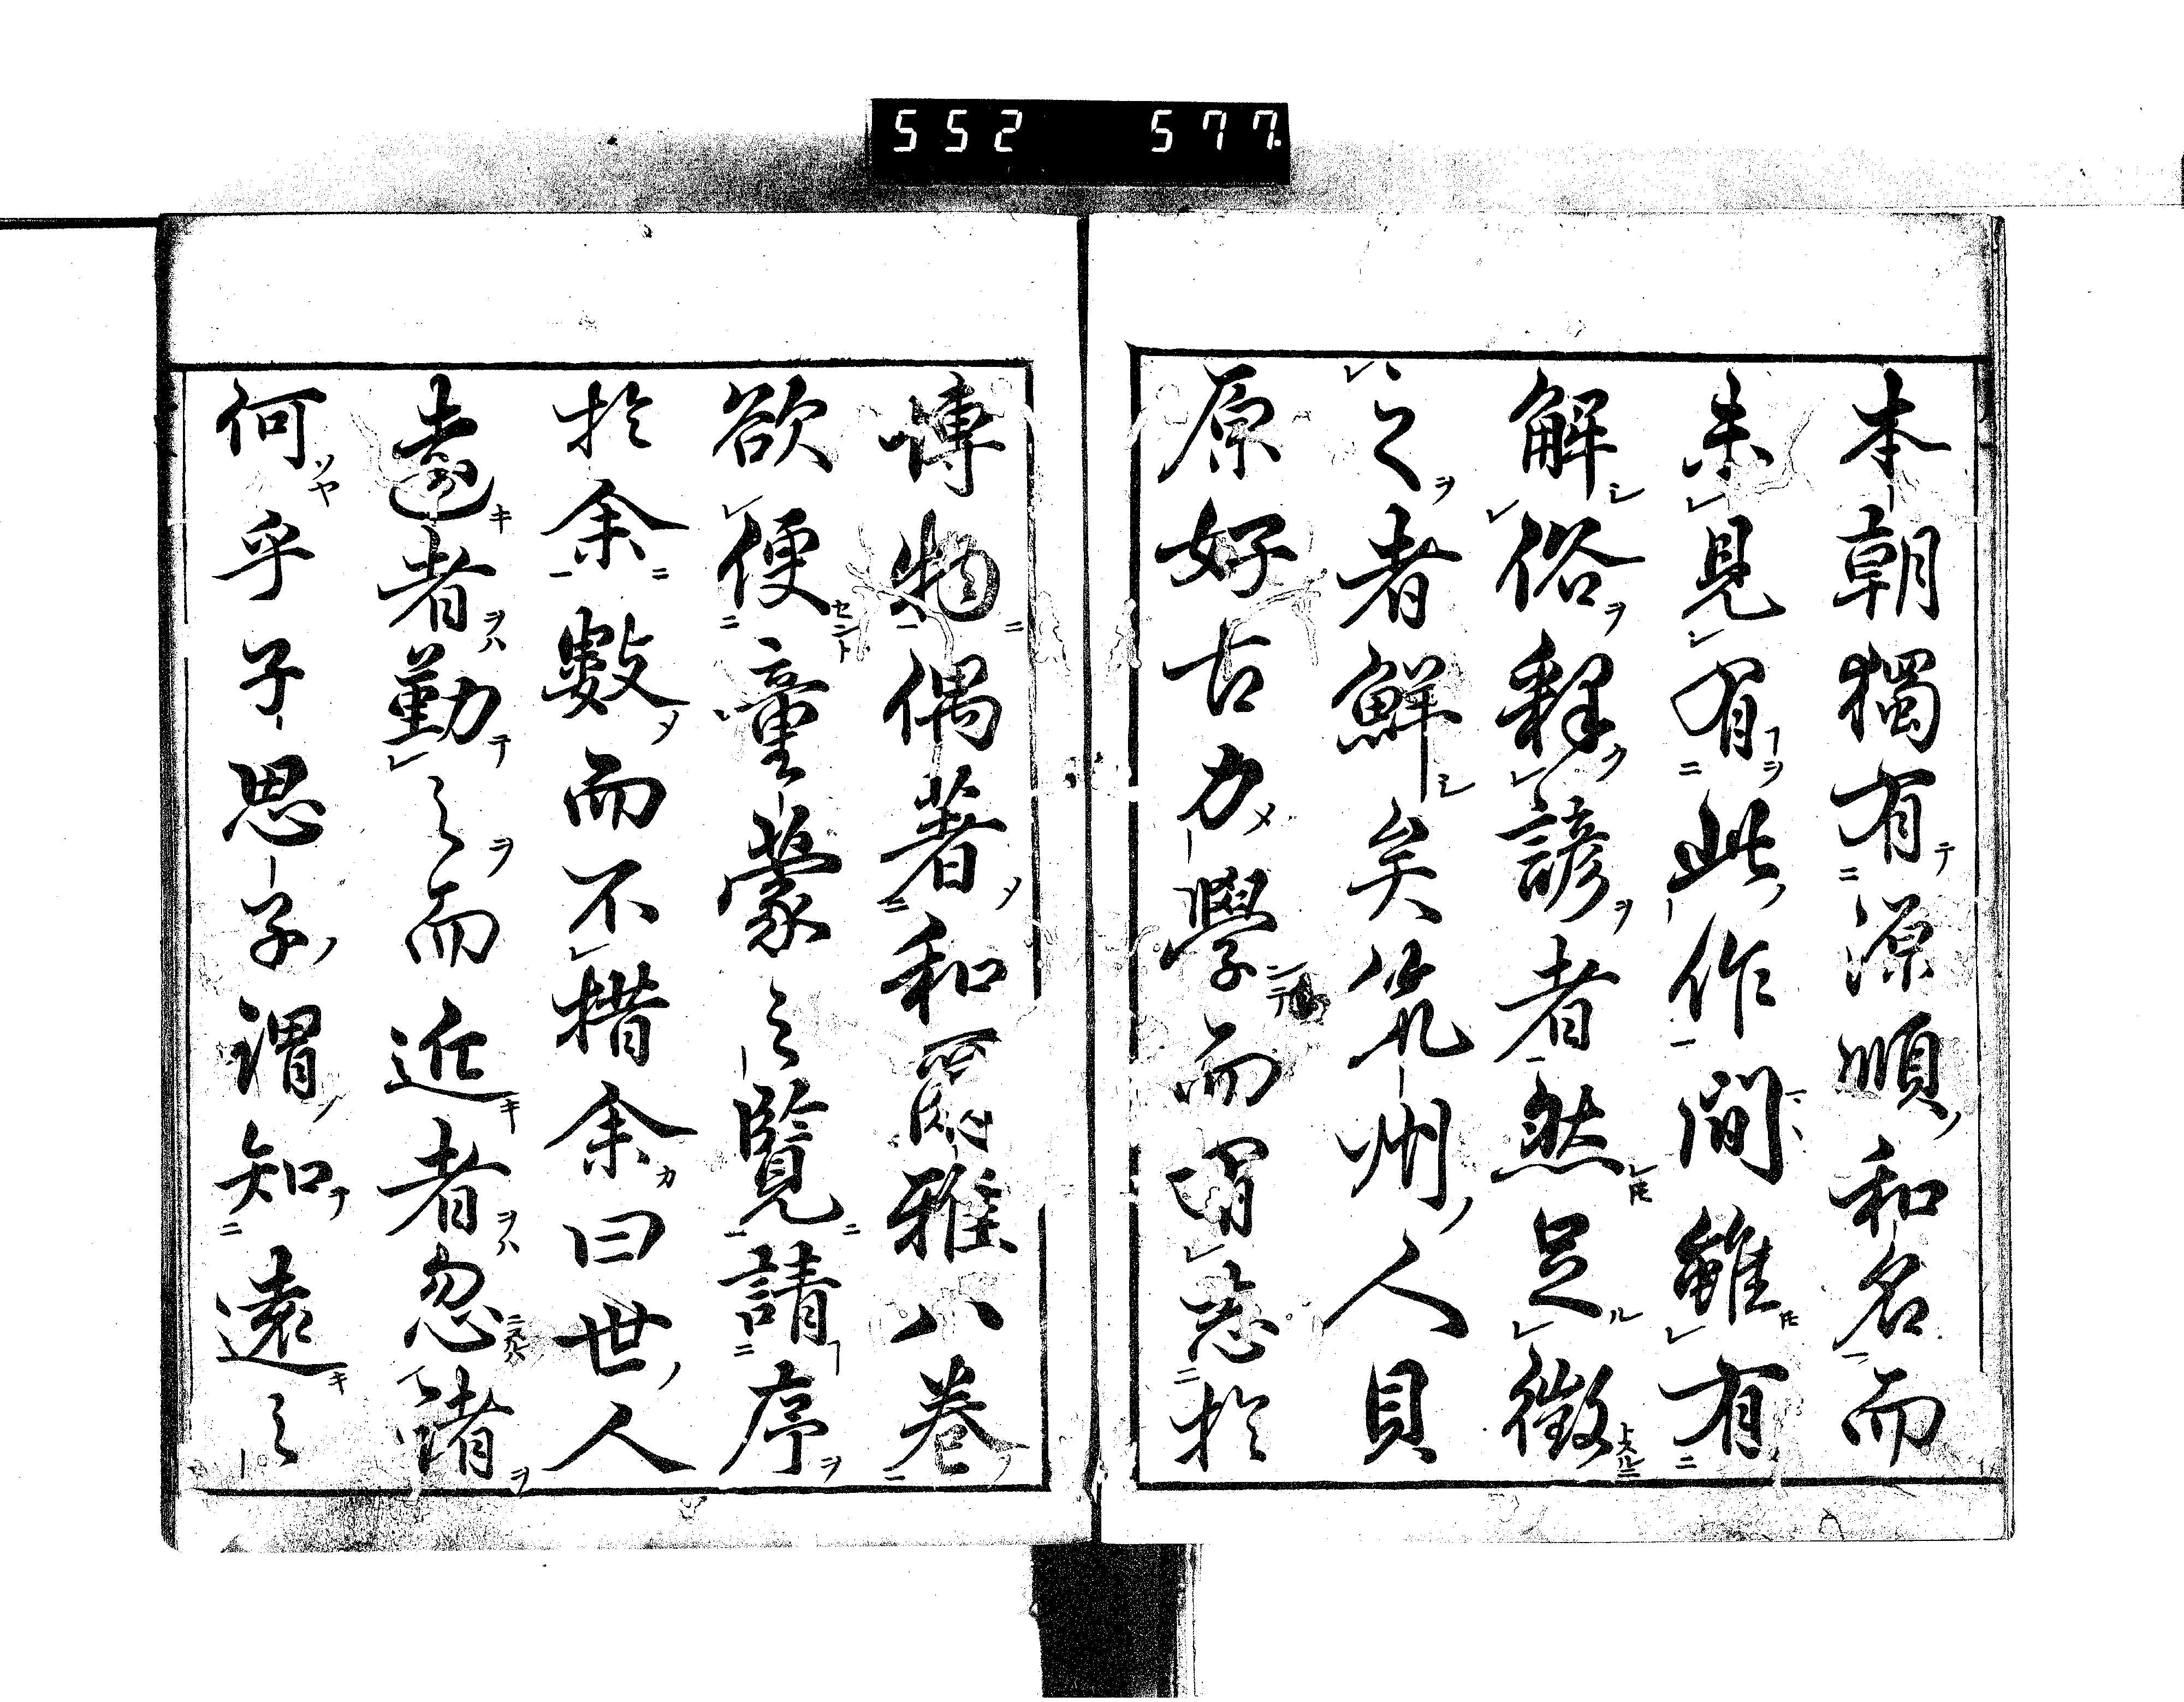 552 577
本朝獨有源順和名而
未見有此作間雖有
解俗釋諺者然足徴
之者鮮矣筑州人貝
原好古力學而留志於
博物偶著和爾雅八巻
欲便童蒙之覽請序
於余數而不措余曰世人
遠者勤之而近者忽諸
何乎子思子謂知遠之